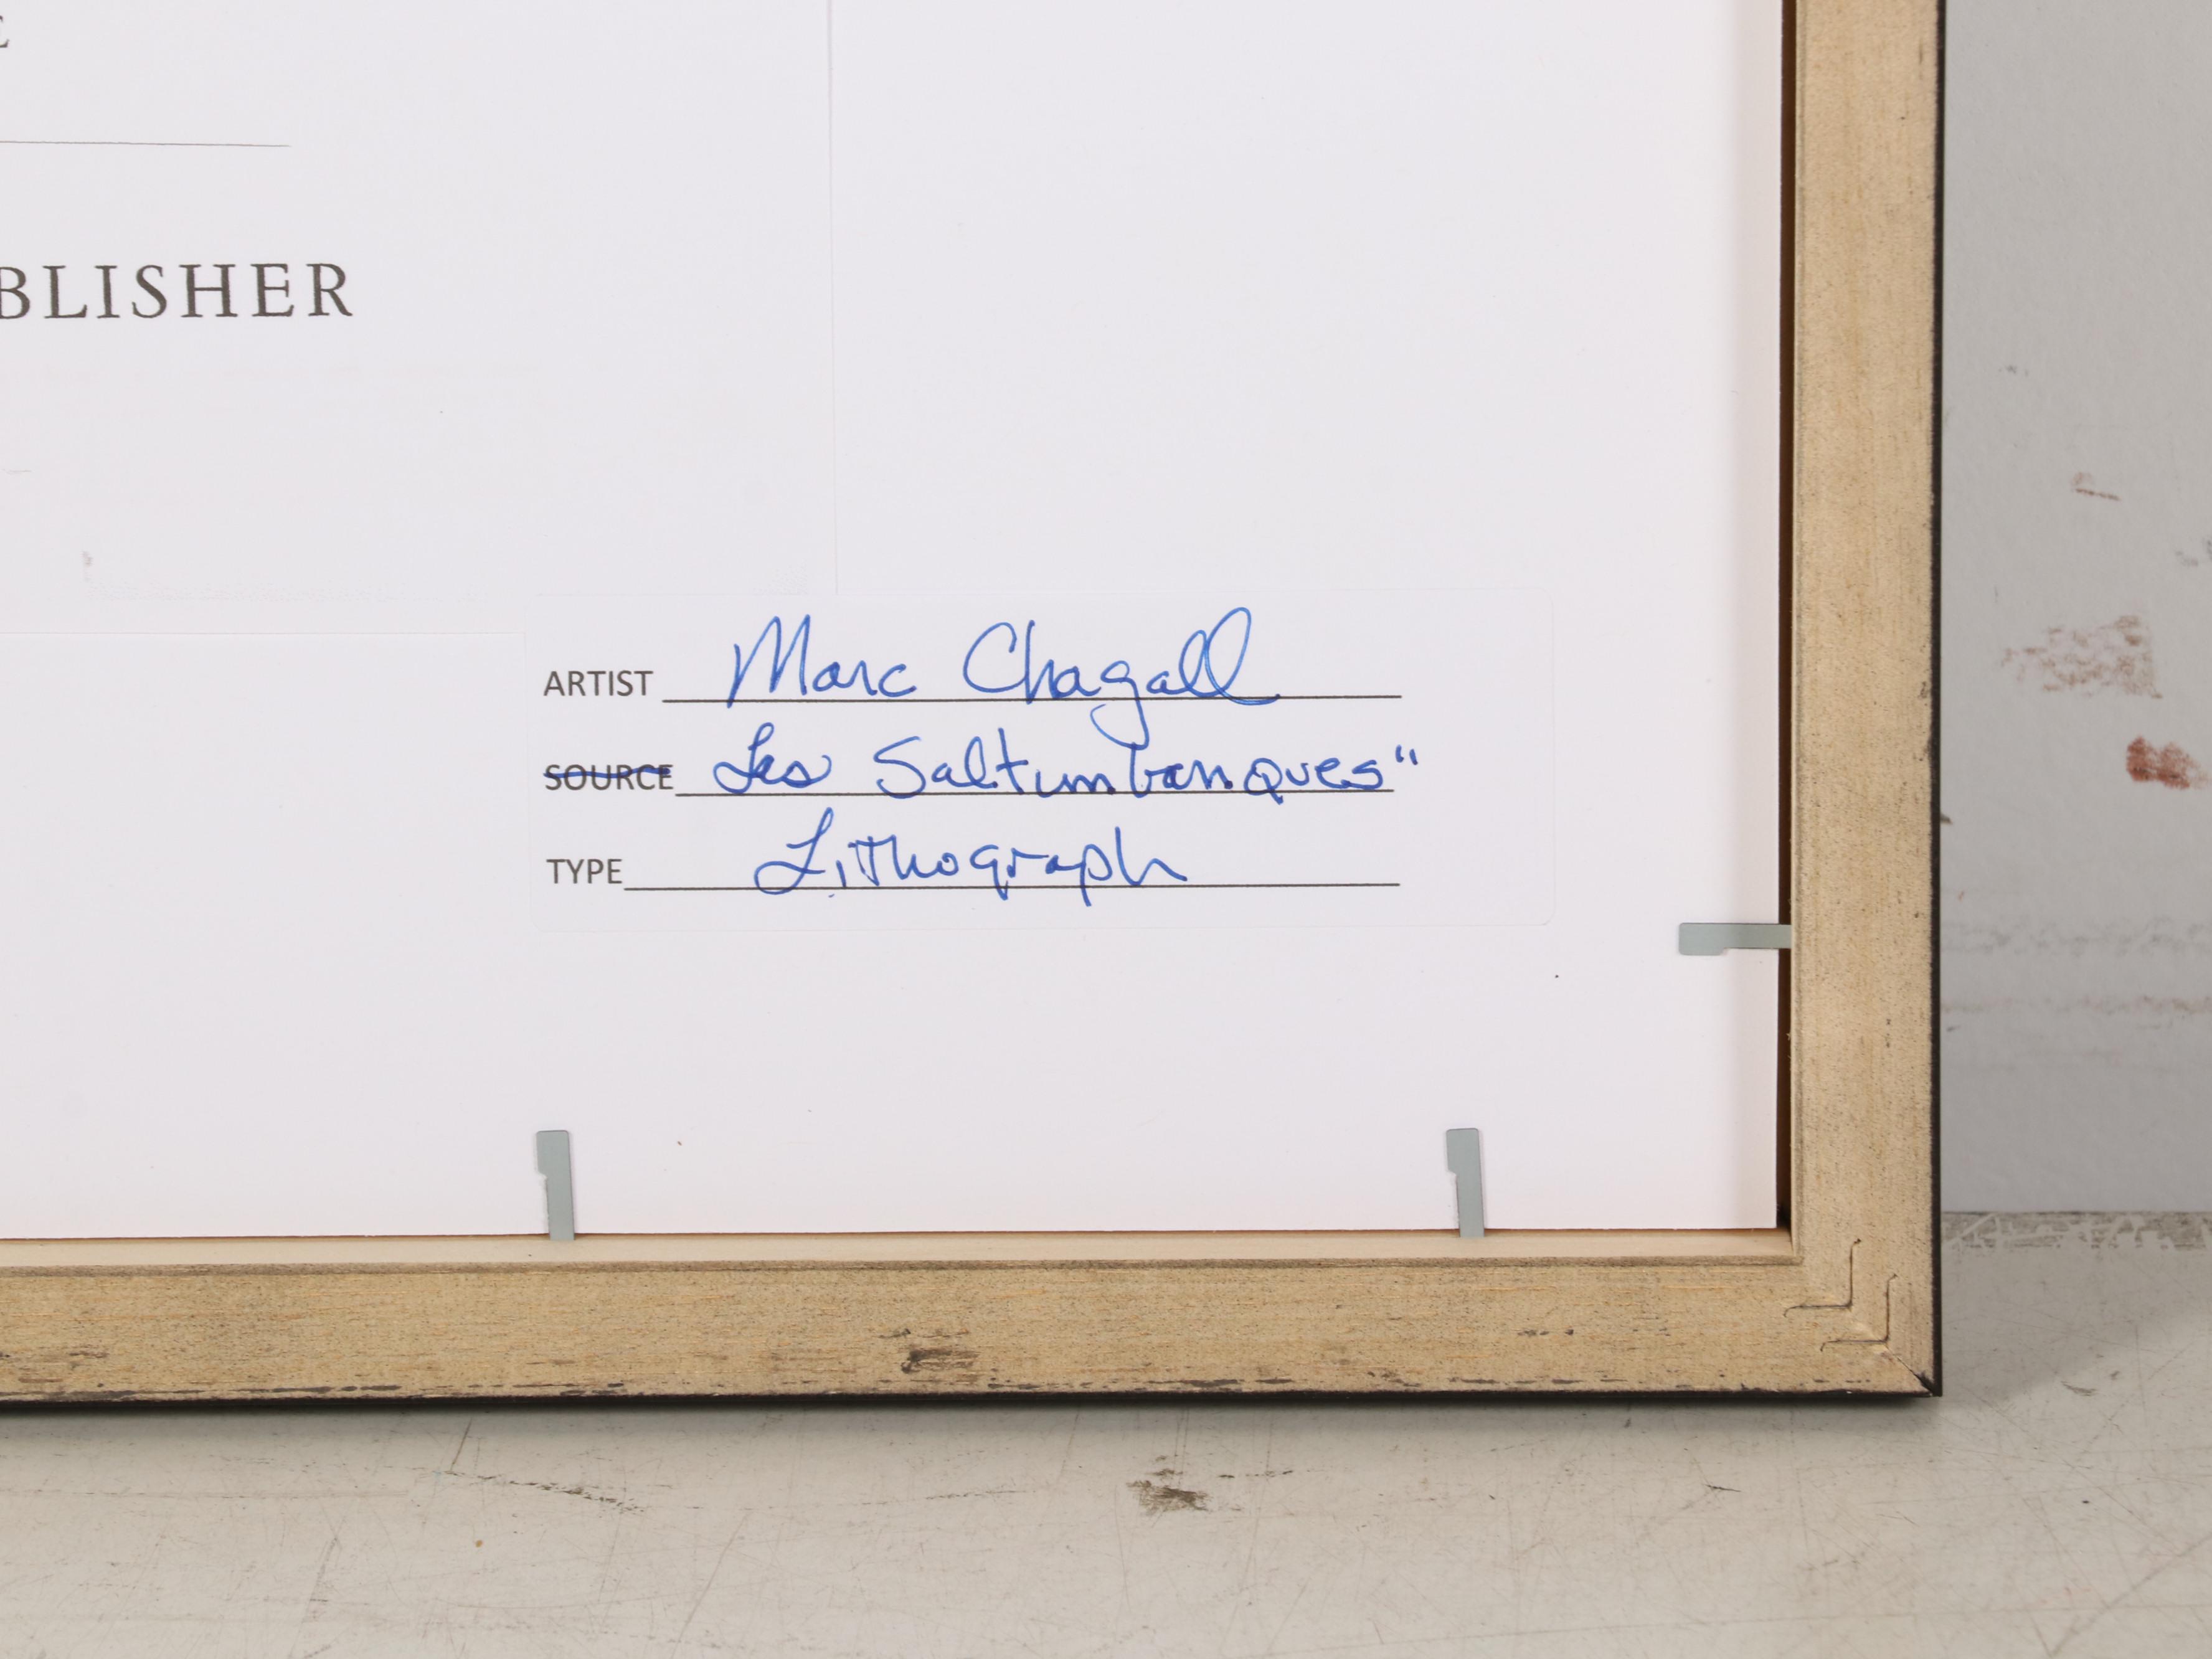 E
BLISHER
ARTIST Marc Chagall
SOURCE Les Saltumbanques"
TYPE Lithograph